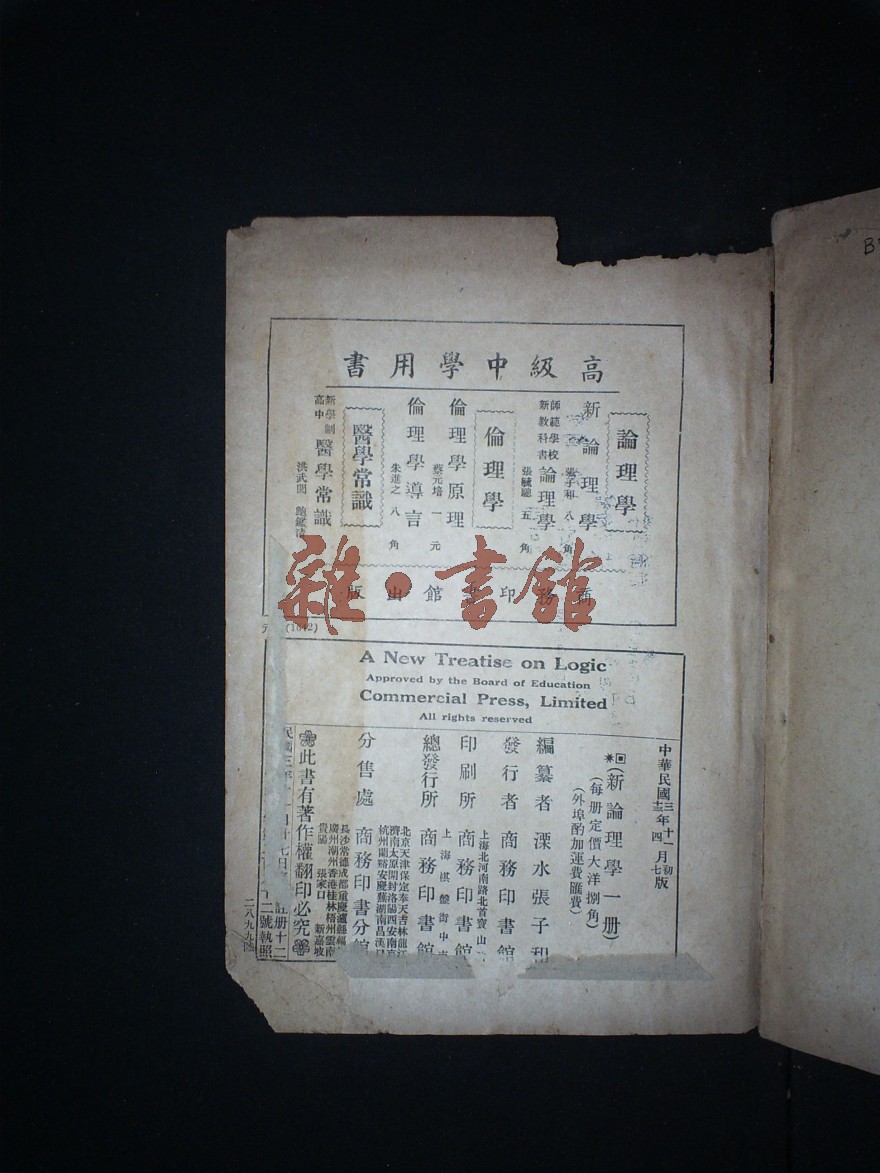 高級中學用書
論理學
新論理學 張子和 八角
師範學校新教科書 論理學 張毓驄 五角
倫理學
倫理學原理 蔡元培 一元
倫理學導言 朱進之 八角
醫學常識
新學制高中 醫學常識
商務印書館出版
雜·書館
元
A New Treatise on Logic
Approved by the Board of Education
Commercial Press, Limited
All rights reserved
中華民國三年十一月初版
十三年四月七版
(新論理學一册)
(每册定價大洋捌角)
(外埠酌加運費匯費)
編纂者 溧水張子和
發行者 商務印書館
上海北河南路北首寶山
印刷所 商務印書館
上海棋盤街中
總發行所 商務印書館
北京天津保定奉天吉林龍江
濟南太原開封洛陽西安南京
杭州蘭谿安慶蕪湖南昌漢口
分售處 商務印書分館
長沙常德成都重慶瀘縣福
廣州潮州香港桂林梧州雲南
貴陽 張家口 新嘉坡
此書有著作權翻印必究
二號執照
册十二
二八九九
B